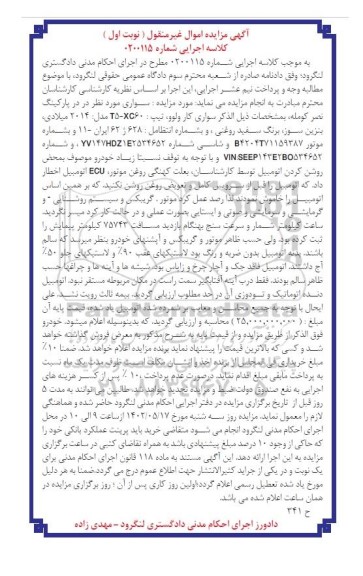 آگهی مزایده اموال غیرمنقول ( نوبت اول )
کلاسه اجرایی شماره ۰۲۰۰۱۱۵
به موجب کلاسه اجرایی شماره ۰۲۰۰۱۱۵ مطرح در اجرای احکام مدنی دادگستری
لنگرود؛ وفق دادنامه صادره از شعبه محترم سوم دادگاه عمومی حقوقی لنگرود، با موضوع
مطالبه وجه و پرداخت نیم عشر اجرایی، این اجرا بر اساس نظریه کارشناسی کارشناسان
محترم مبادرت به انجام مزایده می نماید: مورد مزایده : سواری مورد نظر در در پارکینگ
نصر کومله، بمشخصات ذیل الذکر سواری کار ولوو، تیپ : T5-XC60 مدل: ۲۰۱۴ میلادی،
بنزین سوز، برنگ سفید روغنی ، و بشماره انتظامی : ۶۲۸ ی ۶۲ ایران -۱۱ و بشماره
موتور B4204T71159387 و شاسی شماره YV1472HDZ1E2534652 ، و شماره
VIN:SEEP1422E2BO534652 و با توجه به توقف نسبتا زیاد خودرو موصوف بمحض
روشن کردن اتومبیل توسط کارشناسان، بعلت کهنگی روغن موتور، ECU اتومبیل اخطار
داد، که اتومبیل را قبل از سرویس کامل و تعویض روغن روشن نکنید. که بر همین اساس
اتومبیل را خاموش نمودند لذا رصد عمل کرد موتور ، گیربکس و سیستم روشنایی - و
گرمایشی و سرمایشی و صوتی و ایستایی بصورت عملی و در حالت کار کرد میسر نگردید.
ساعت کیلومتر شمار و سرعت سنج بهنگام بازدید مسافت ۷۵۷۴۳ کیلومتر پیمایش را
ثبت کرده بود. ولی حسب ظاهر موتور و گیربکس و آپشنهای خودرو بنظر میرسد که سالم
باشند. بدنه اتومبیل بدون ضربه و رنگ بود لاستیکهای عقب ۹۰٪ و لاستیکهای جلو ۵۰٪
آج داشتند. اتومبیل فاقد جک و آچار چرخ و زاپاس بود. شیشه ها و آینه ها و چراغها حسب
ظاهر سالم بودند. فقط درب آینه آفتابگیر سمت راست در مکان مربوطه مستقر نبود. اتومبیل
دنده اتوماتیک و تودوزی آن در حد مطلوب ارزیابی گردید. بیمه ثالث رویت نشد. علی
ایحال با توجه به جمیع محاسن و معایب بر شمرده شده اتومبیل یاد شده، قیمت پایه آن
مبلغ : ( ۲۵,۰۰۰,۰۰۰,۰۰۰ ) محاسبه و ارزیابی گردید، که بدینوسیله اعلام میشود. خودرو
فوق الذکر از طریق مزایده و از قیمت پایه به شرح مذکور به معرض فروش گذاشته خواهد
شد و کسی که بالاترین قیمت را پیشنهاد نماید برنده مزایده اعلام خواهد شد. ضمنا ۱۰٪
مبلغ خریداری فی المجلس از برنده اخذ و ایشان مکلف است ظرف مدت یک ماه نسبت
به پرداخت مابقی مبلغ اقدام نماید. در صورت عدم پرداخت ۱۰٪ پس از کسر هزینه های
اجرایی به نفع صندوق دولت ضبط و مزایده تجدید خواهد شد. طالبین می توانند به مدت ۵
روز قبل از تاریخ برگزاری مزایده در دفتر اجرایی احکام مدنی لنگرود حاضر شده و هماهنگی
لازم را معمول نماید. مزایده روز سه شنبه مورخ ۱۴۰۲/۰۵/۱۷ از ساعت ۹ الی ۱۰ در محل
اجرای احکام مدنی لنگرود انجام می شود. متقاضی خرید باید پرینت عملکرد بانکی خود را
که حاکی از وجود ۱۰ درصد مبلغ پیشنهادی باشد به همراه تقاضای کتبی در ساعت برگزاری
مزایده به این اجرا ارائه دهد. این آگهی مستند به ماده ۱۱۸ قانون اجرای احکام مدنی برای
یک نوبت و در یکی از جراید کثیرالانتشار جهت اطلاع عموم درج می گردد.ضمنا به هر دلیل
مورخ یاد شده تعطیل رسمی اعلام گردد؛اولین روز کاری پس از آن ؛ روز برگزاری مزایده در
همان ساعت اعلام شده می باشد.
ح ۳۴۱
دادورز اجرای احکام مدنی دادگستری لنگرود - مهدی زاده